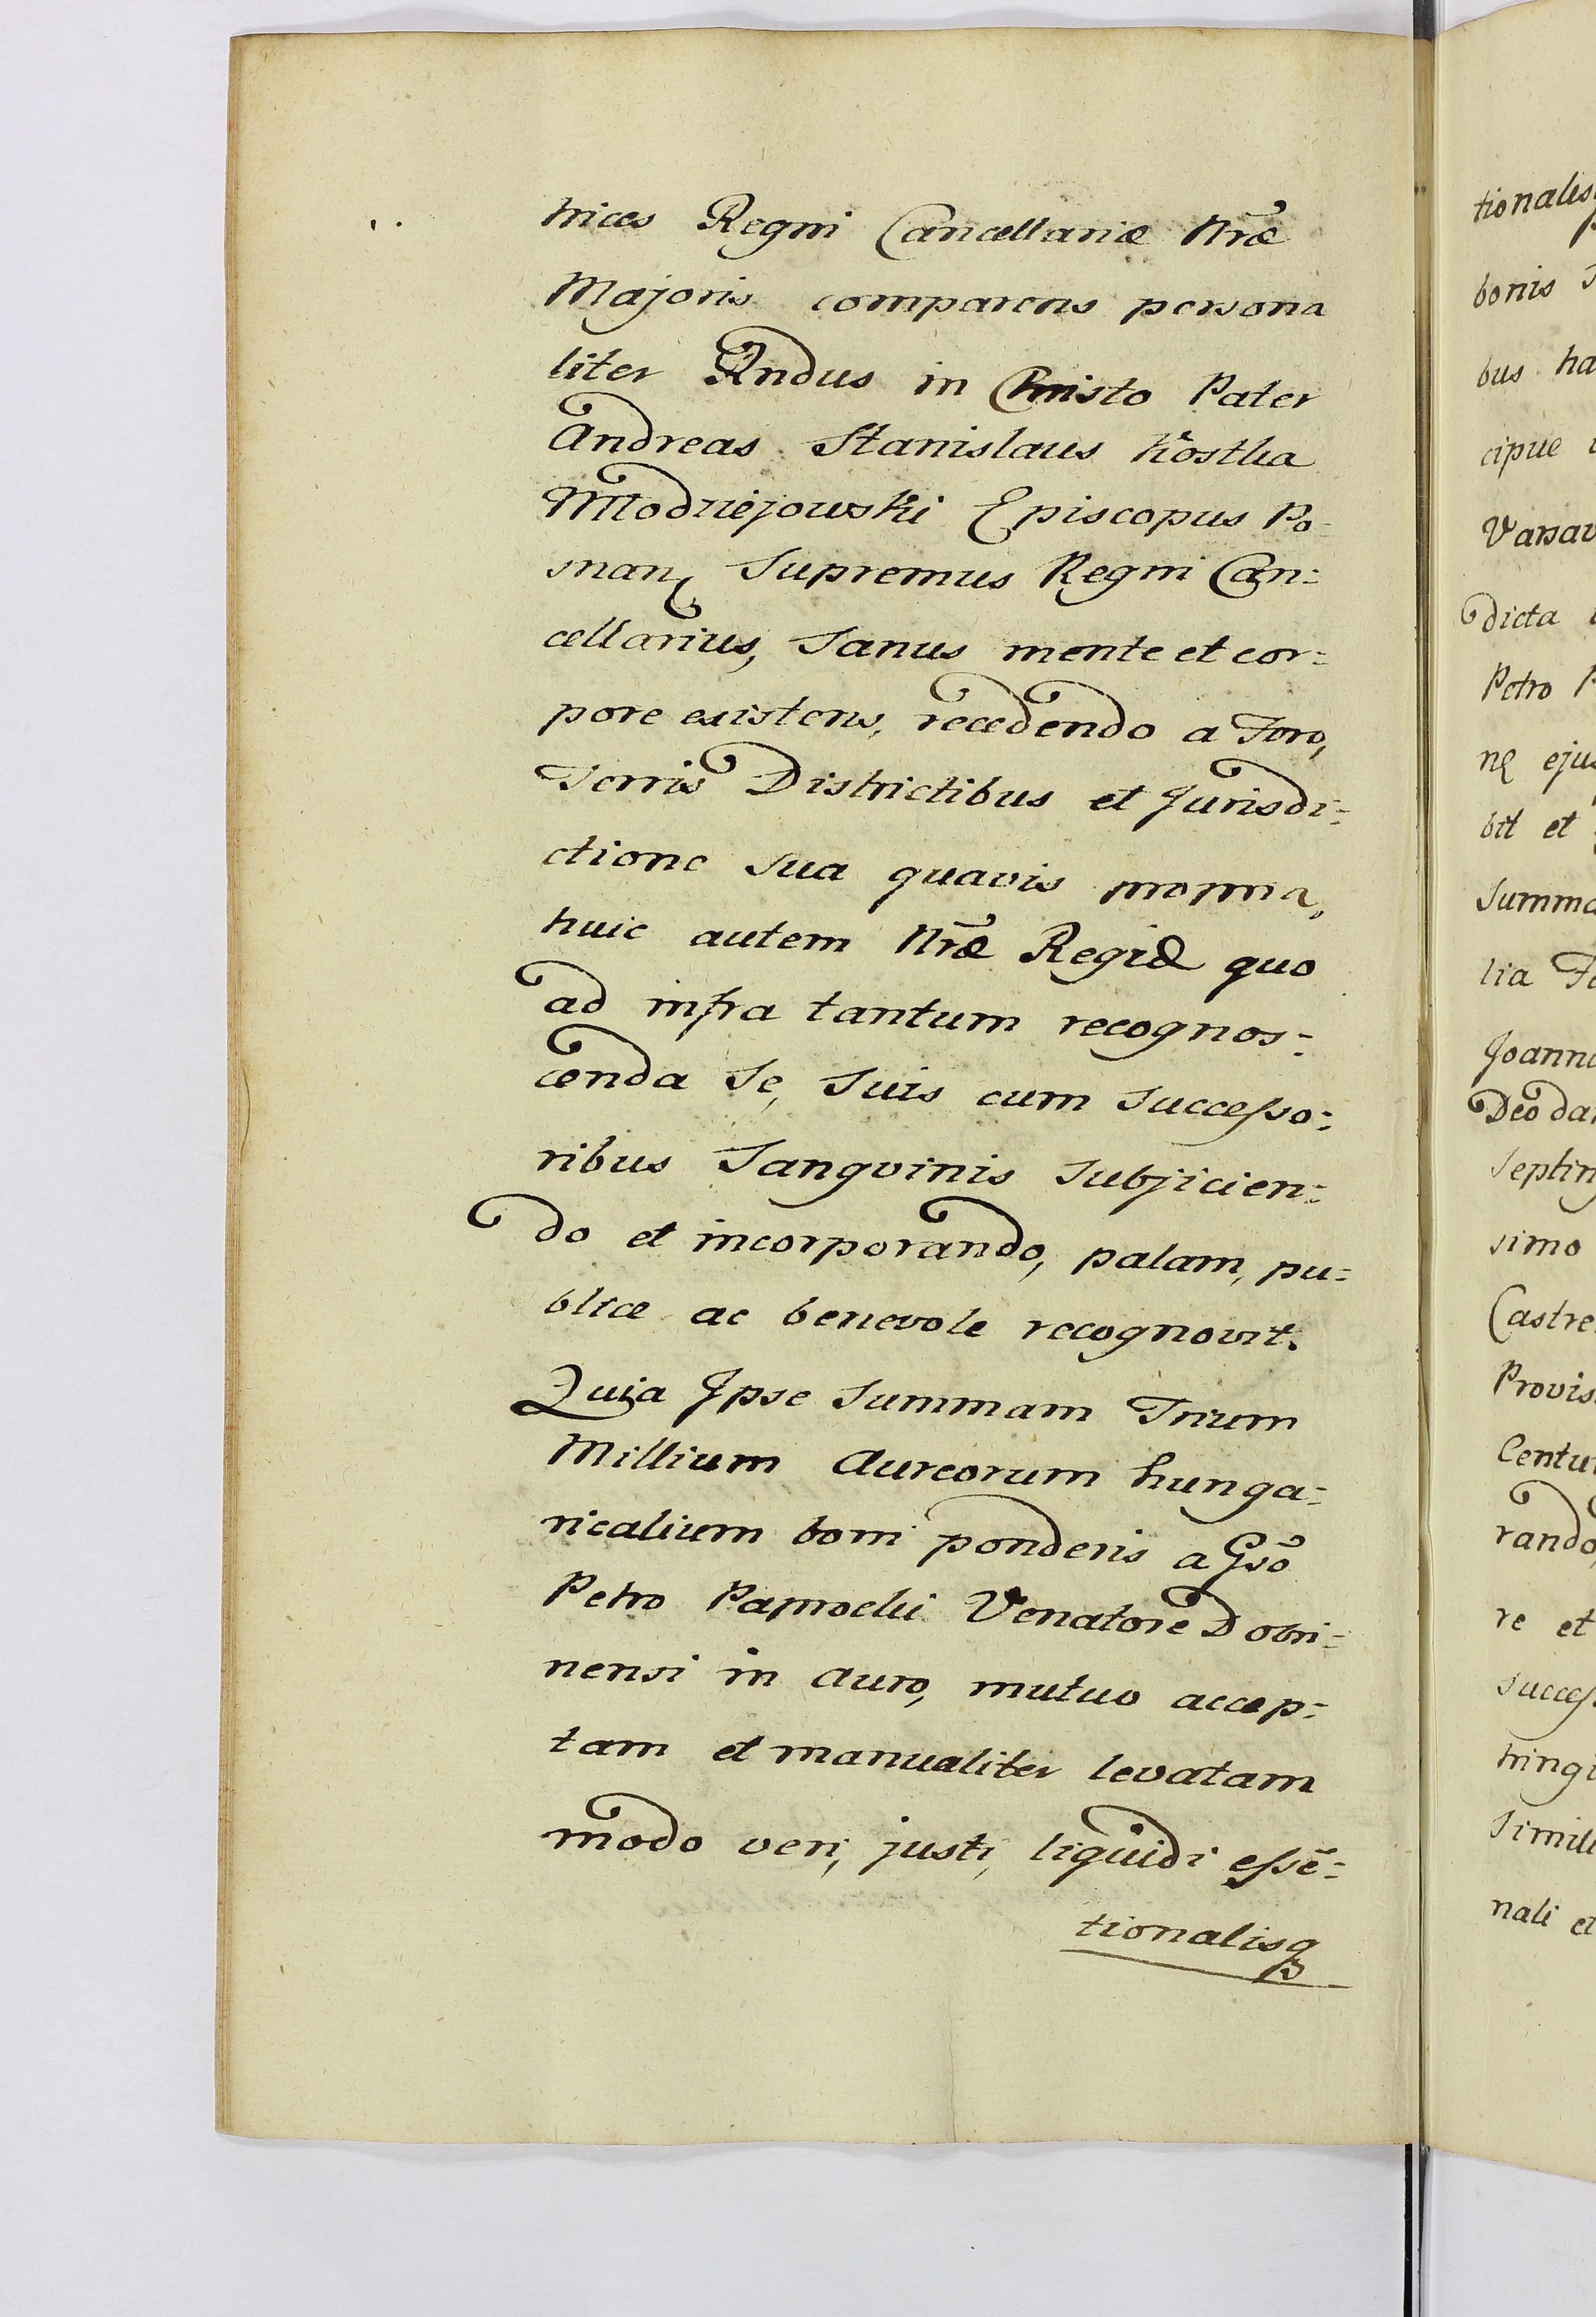 trices Regni Cancellariæ Nræ
Majoris comparens persona
liter Rndus in Christo Pater
Andreas Stanislaus Kostka
Młodziejowski Episcopus Po-
snan, Supremus Regni Can=
cellarius, Sanus mente et cor=
pore existens, recedendo a Foro,
Terris Districtibus et Jurisdi=
ctione sua quavis propria,
huic autem Nræ Regiæ quo
ad infra tantum recognos=
cenda Se, Suis cum Successo=
ribus Sangvinis Subjicien=
do et incorporando, palam, pu=
blice ac benevole recognovit.
Quia Ipse Summam Trium
Millium Aureorum hunga=
ricalium boni ponderis a Gso
Petro Paprocki Venatore Dobri=
nensi in Auro, mutuo accep=
tam et manualiter levatam
modo veri, justi, liquidi essē=
tionalisq
tionalisq
bonis
bus ha
cipue
Varsav
dicta
Petro P
nę ejus
bit et
Summa
lia Fa
Joanne
Deo da
Septin
simo
Castre
Provis
Centu
rando
re et
success
tringi
Simili
nali et